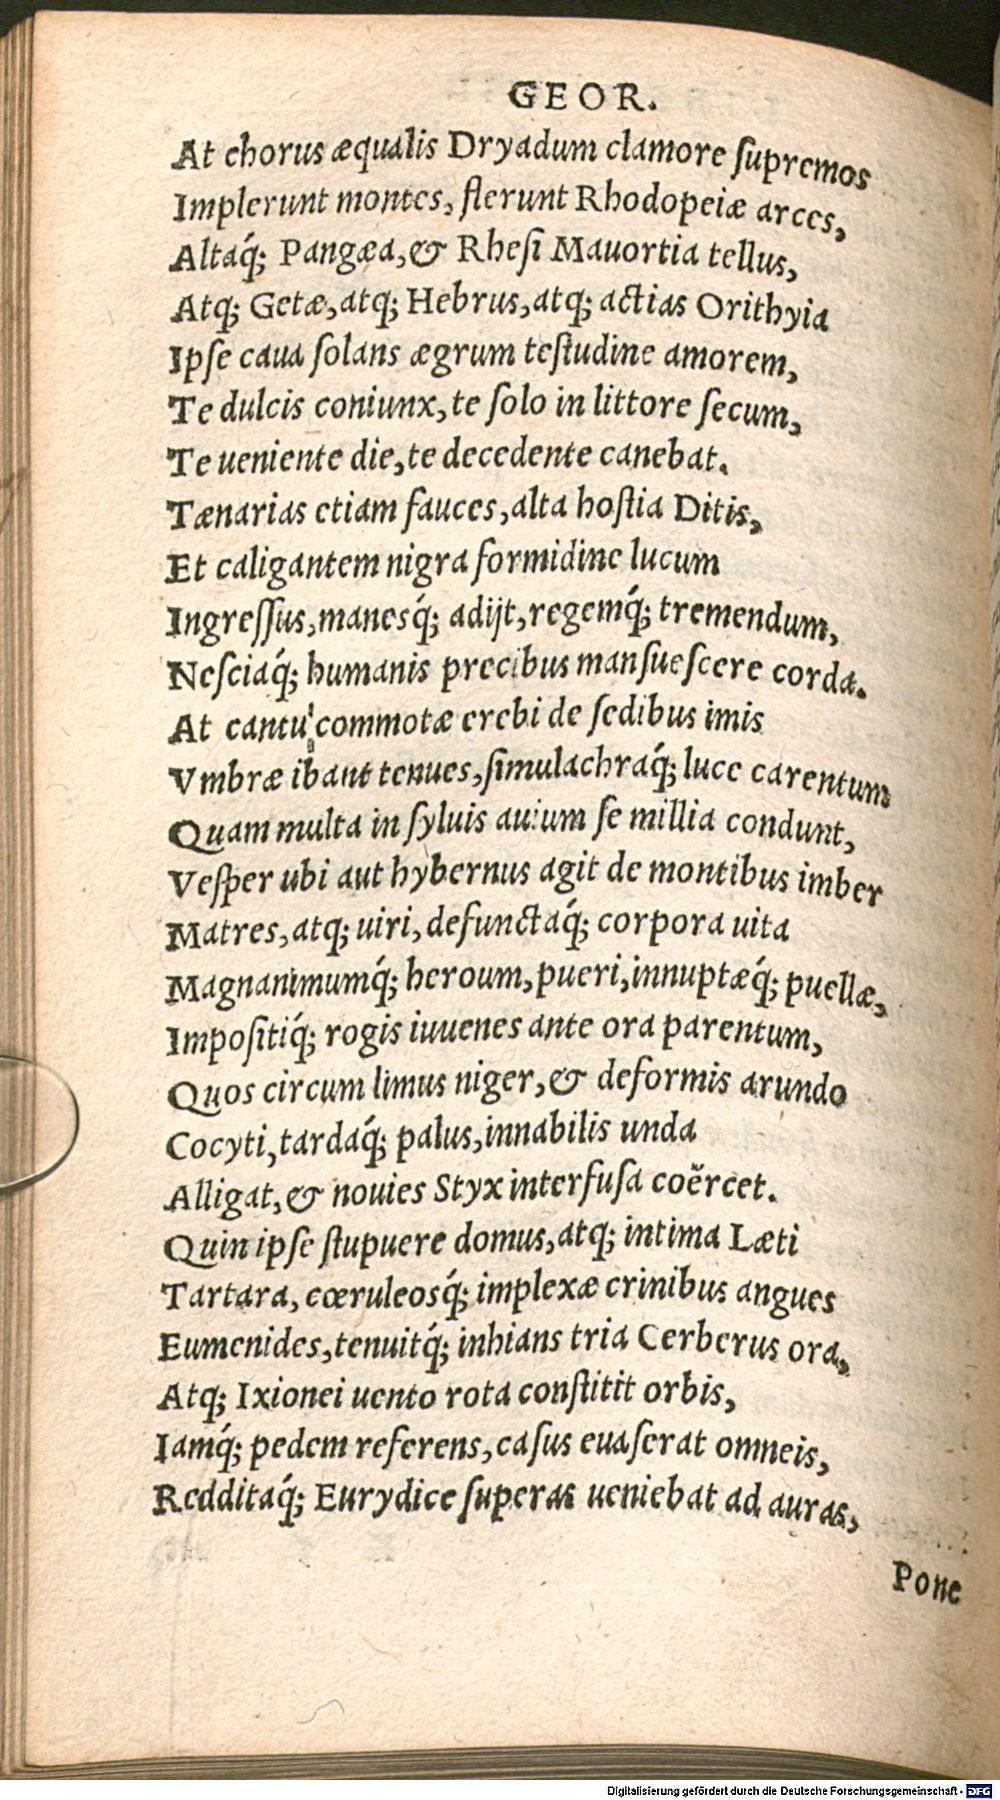 GEOR.
At chorus æqualis Dryadum clamore ſupremos
Implerunt montes, flerunt Rhodopeiæ arces,
Altaq́; Pangæa, & Rheſi Mauortia tellus,
Atq; Getæ, atq; Hebrus, atq; actias Orithyia
Ipſe caua ſolans ægrum teſtudine amorem,
Te dulcis coniunx, te ſolo in littore ſecum,
Te ueniente die, te decedente canebat.
Tænarias etiam fauces, alta hoſtia Ditis,
Et caligantem nigra formidine lucum
Ingreſſus, manesq́; adijt, regemq́; tremendum,
Neſciaq́; humanis precibus manſueſcere corda.
At cantu commotæ erebi de ſedibus imis
Vmbræ ibant tenues, ſimulachraq́; luce carentum
Quam multa in ſyluis auium ſe millia condunt,
Veſper ubi aut hybernus agit de montibus imber
Matres, atq; uiri, defunctaq́; corpora uita
Magnanimumq́; heroum, pueri, innuptæq́; puellæ,
Impoſitiq́; rogis iuuenes ante ora parentum,
Quos circum limus niger, & deformis arundo
Cocyti, tardaq́; palus, innabilis unda
Alligat, & nouies Styx interfuſa coërcet.
Quin ipſe ſtupuere domus, atq; intima Læti
Tartara, cœruleosq́; implexæ crinibus angues
Eumenides, tenuitq́; inhians tria Cerberus ora,
Atq; Ixionei uento rota conſtitit orbis,
Iamq́; pedem referens, caſus euaſerat omneis,
Redditaq́; Eurydice ſuperas ueniebat ad auras,
Pone
Digitalisierung gefördert durch die Deutsche Forschungsgemeinschaft - DFG